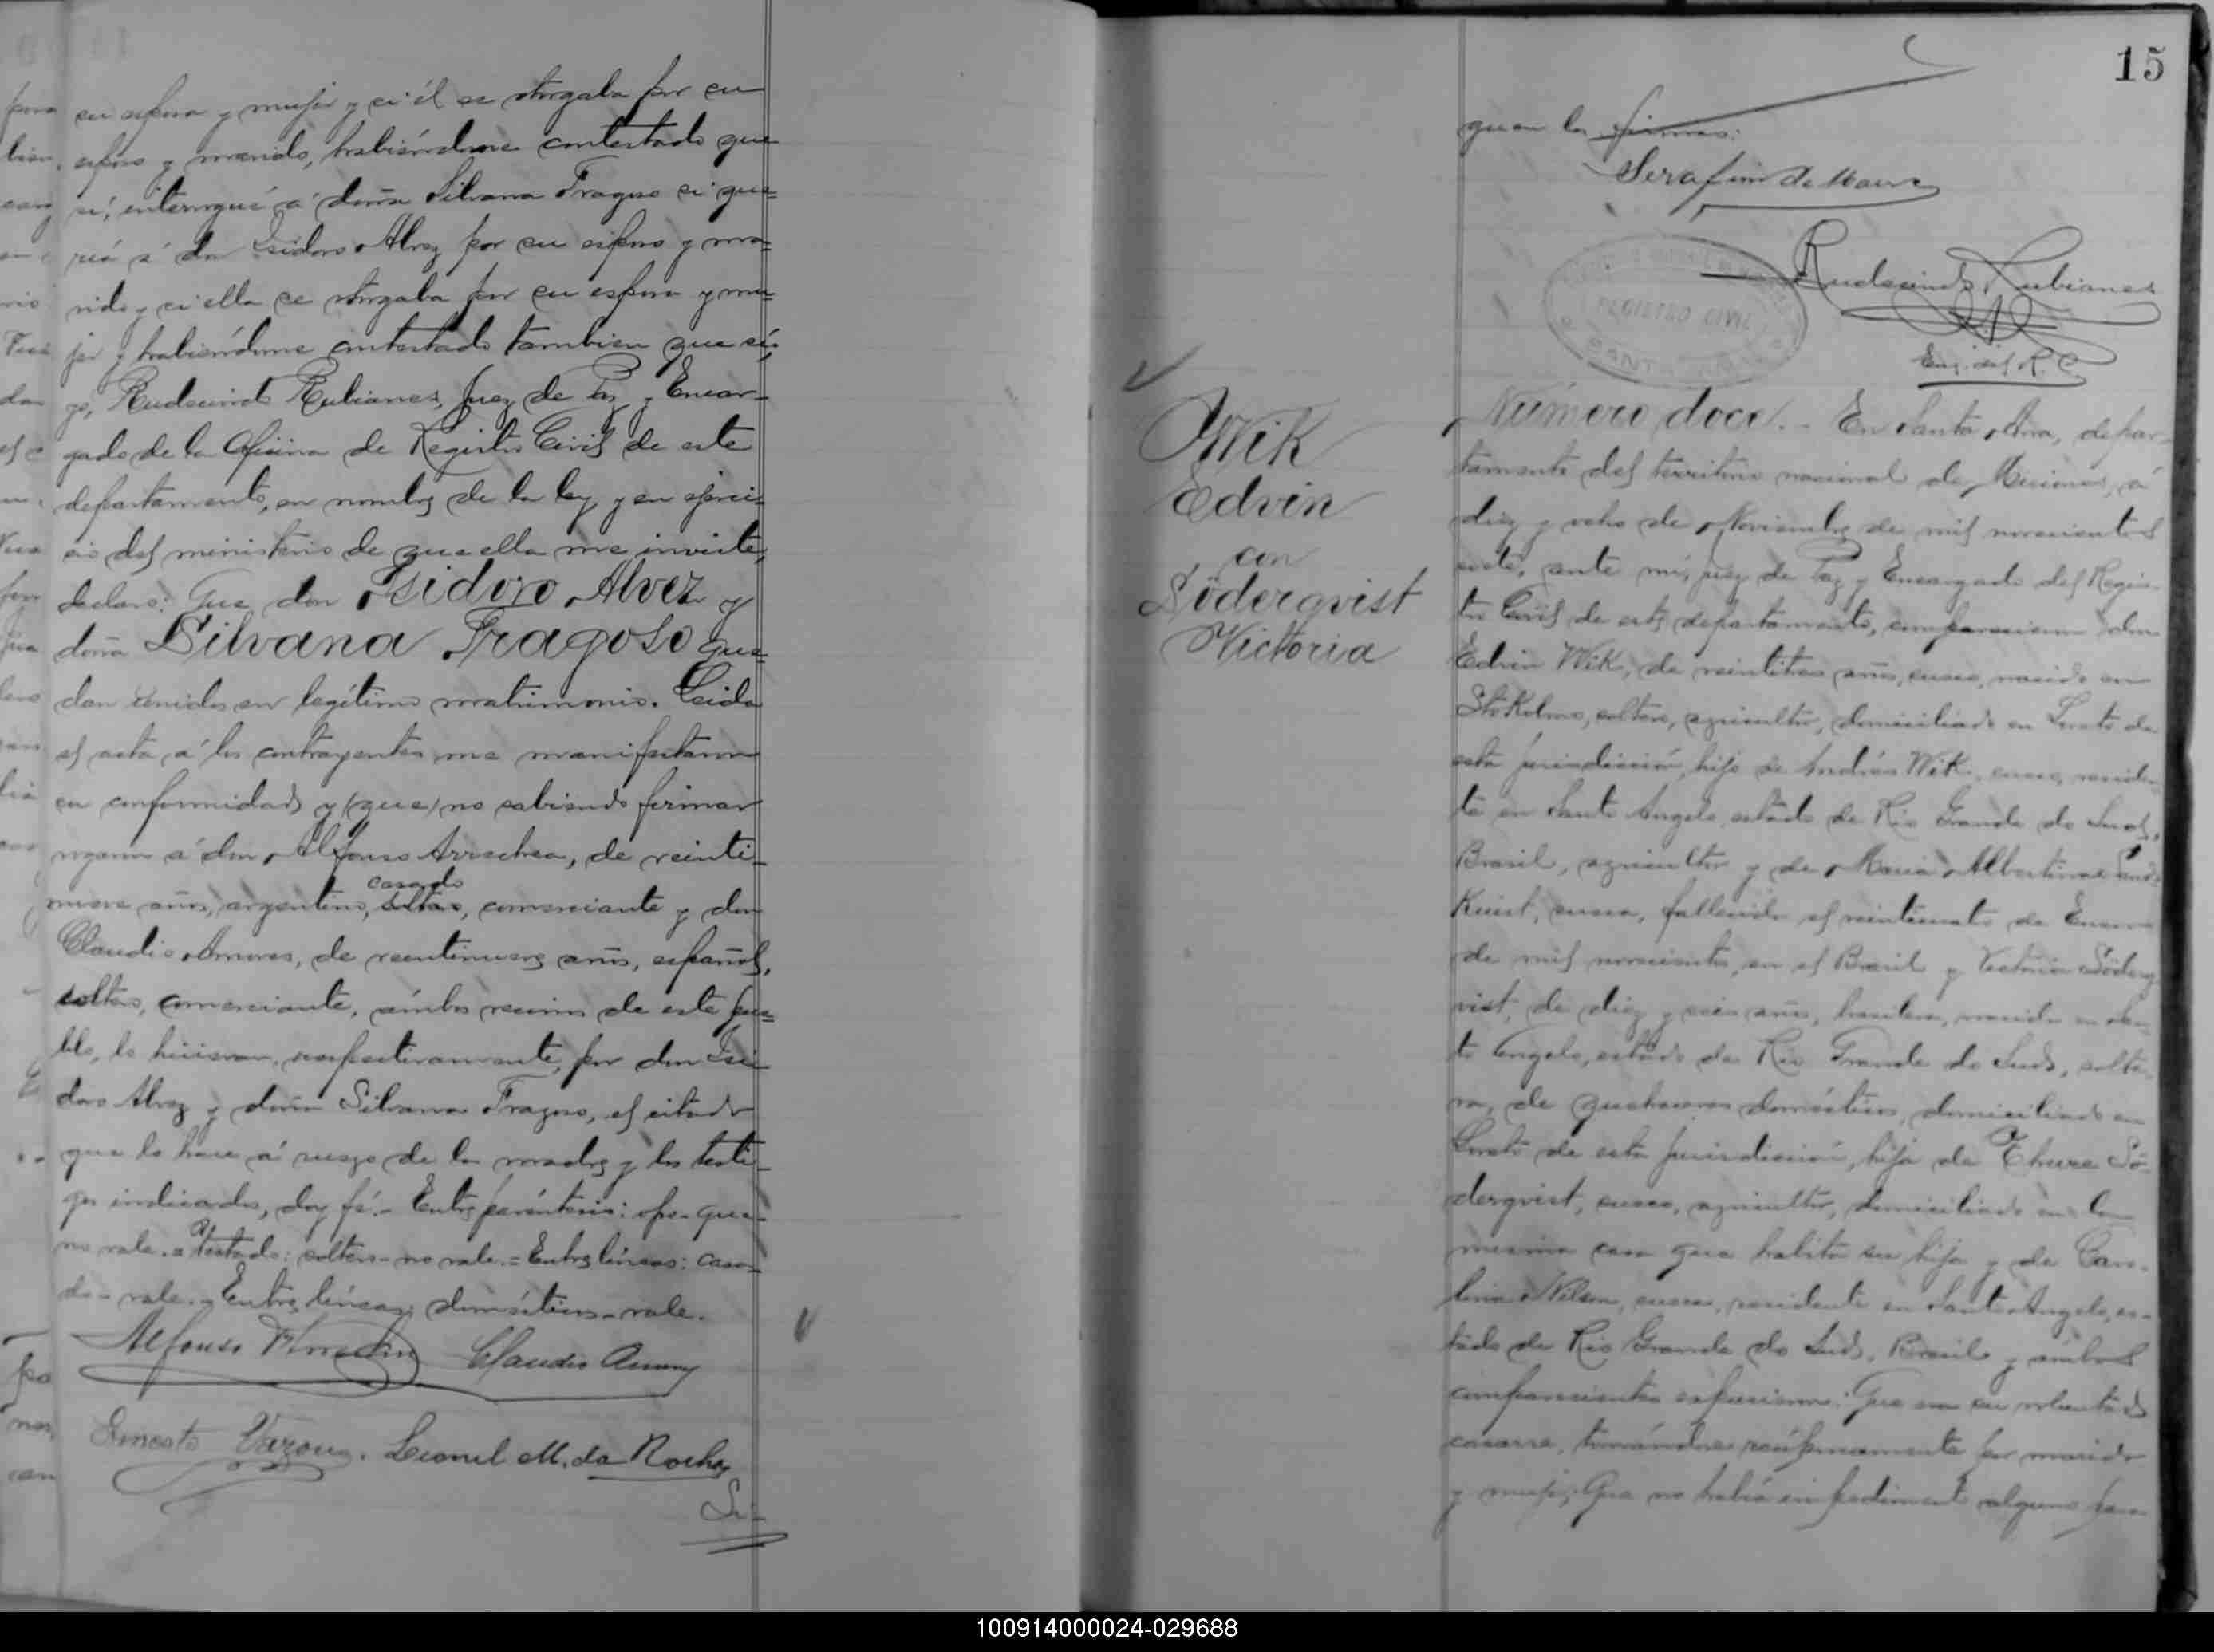 su esposa y mujer y si él se otorgaba por su
esposo y marido, habiéndome contestado que
sí, interrogué á doña Silvana Fragoso si que=
ría á don Isidoro Alvez por su esposo y ma=
rido y si ella se otorgaba por su esposa y mu=
jer y habiéndome contestado tambien que sí;
yo, Rudecindo Rubianes, Juez de Paz y Encar-
gado de la Oficina de Registro Civil de este
departamento, en nombre de la ley y en ejerci-
cio del ministerio de que ella me inviste,
declaro: Que don Isidoro Alvez y
doña Silvana Fragoso que=
dan unidos en legítimo matrimonio. Leida
el acta á los contrayentes me manifestaron
su conformidad y (que) no sabiendo firmar
rogaron á don Alfonso Arrechea, de veinti-
nueve años, argentino, soltero, casado comerciante y don
Claudio Amores, de veintinueve años, español,
soltero, comerciante, ámbos vecinos de este pue=
blo, lo hicieran, respectivamente, por don Isi
doro Alvez y doña Silvana Fragoso, el citado
que lo hace á ruego de la madre y los testi-
gos indicados, doy fé.- Entre paréntesis: que-
no vale.= Testado: soltero-no vale.= Entre líneas: casa=
do-vale.- Entre líneas: domésticos-vale.
Alfonso Arrechea Claudio Amores
Ernesto . Leonel M. da Rocha
Si=
15
guen las firmas:
Serafin de
Rudecindo Rubianes
Enc. del R. C.
REGISTRO CIVIL
SANTA ANA
Wik
Edvin
con
Söderqvist
Victoria
Número doce.- En Santa Ana, depar-
tamento del territorio nacional de Misiones, á
diez y ocho de Noviembre de mil novecientos
siete, ante mí, Juez de Paz y Encargado del Regis-
tro Civil de este departamento, comparecieron don
Edvin Wik, de veintitres años, sueco, nacido en
Stokolmo, soltero, agricultor, domiciliado en Loreto de
esta jurisdicción, hijo de Andrés Wik, sueco, residen-
te en Santo Angelo, estado de Rio Grande do Sud,
Brasil, agricultor y de Maria Albertina
Kuist, sueca, fallecida el veinticuatro de Enero
de mil novecientos, en el Brasil y Victoria Söderq
vist, de diez y seis años, brasilera, nacida en San-
to Angelo, estado de Rio Grande do Sud, solte-
ra, de quehaceres domésticos, domiciliada en
Loreto de esta jurisdicción, hija de Thure Sö-
derqvist, sueco, agricultor, domiciliado en la
misma casa que habita su hija y de Caro-
lina Nilson, sueca, residente en Santo Angelo, es-
tado de Rio Grande do Sud, Brasil y ámbos
comparecientes expusieron: Que era su voluntad
casarse, tomándose recíprocamente por marido
y mujer; Que no había impedimento alguno para
100914000024-029688